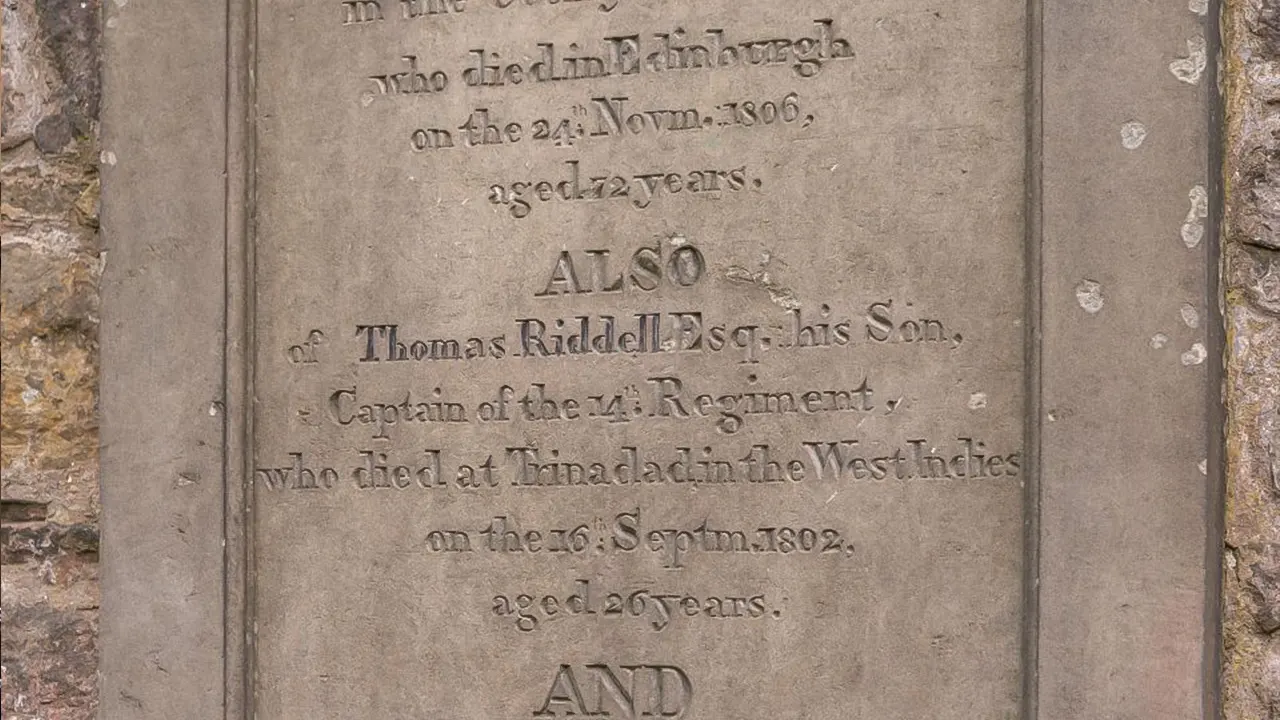 in the County
who died in Edinburgh
on the 24th. Novm. 1806,
aged 72 years.
ALSO
of Thomas Riddell Esq. his Son,
Captain of the 14th. Regiment,
who died at Trinadad, in the West Indies
on the 16th. Septm. 1802,
aged 26 years.
AND